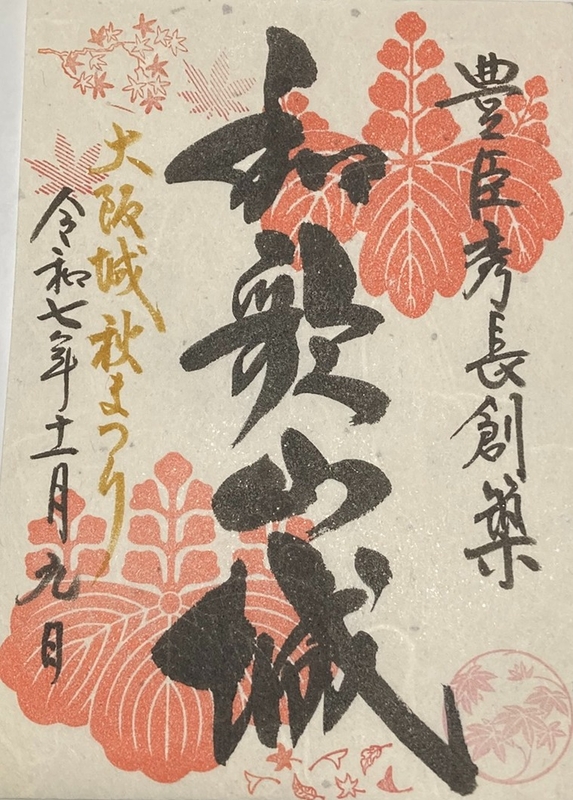 豊臣秀長創築
和歌山城
大阪城秋まつり
令和七年十一月九日